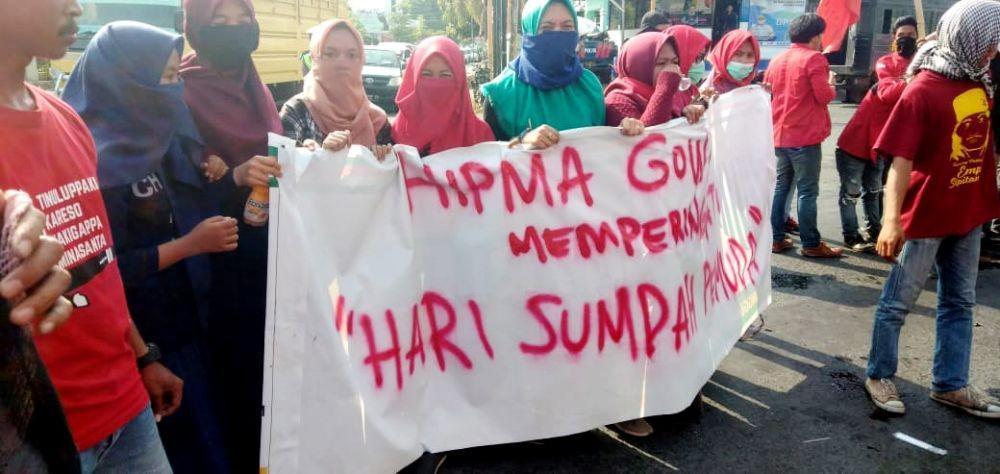 HIPMA GOWA
MEMPERINGATI
"HARI SUMPAH PEMUDA"
TINULUPPAKU
KARESO
NAKIGAPPA
MINASANTA
CH
Emp
Sipitan